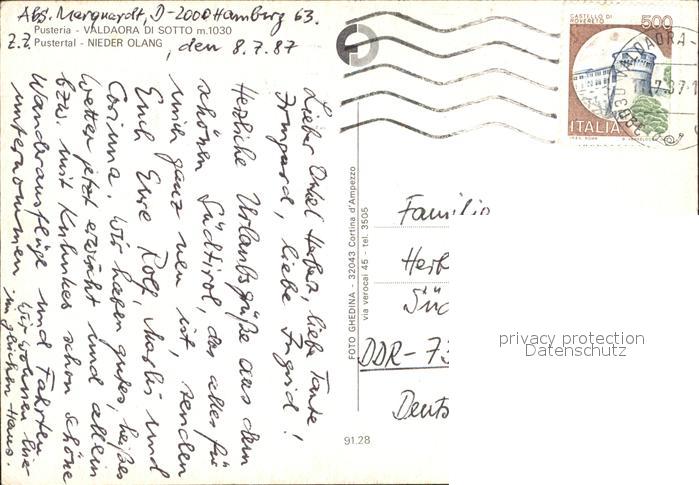 Abs. Marquardt, D-2000 Hamburg 63.
Pusteria - VALDAORA DI SOTTO m.1030
z.Z. Pustertal - NIEDER OLANG
, den 8.7.87
Lieber Onkel Herbert, liebe Tante
Irmgard, liebe Ingrid!
Herzliche Urlaubsgrüße aus dem
schönen Südtirol, das alles für
mich ganz neu ist, senden
Euch Eure Rolf, und
Corinna. Wir haben gutes, heißes
Wetter jetzt erwischt und allein
bzw. mit schon schöne
Wanderausflüge und Fahrten
unternommen. Wir wohnen hier
im gleichen Haus.
FOTO GHEDINA - 32043 Cortina d'Ampezzo
via verocai 45 - tel. 3505
91.28
CASTELLO DI
ROVERETO
500
ITALIA
39030 VALDAORA
7.87-1
Familie
Herb
Süd
DDR-73
Deuts
privacy protection
Datenschutz